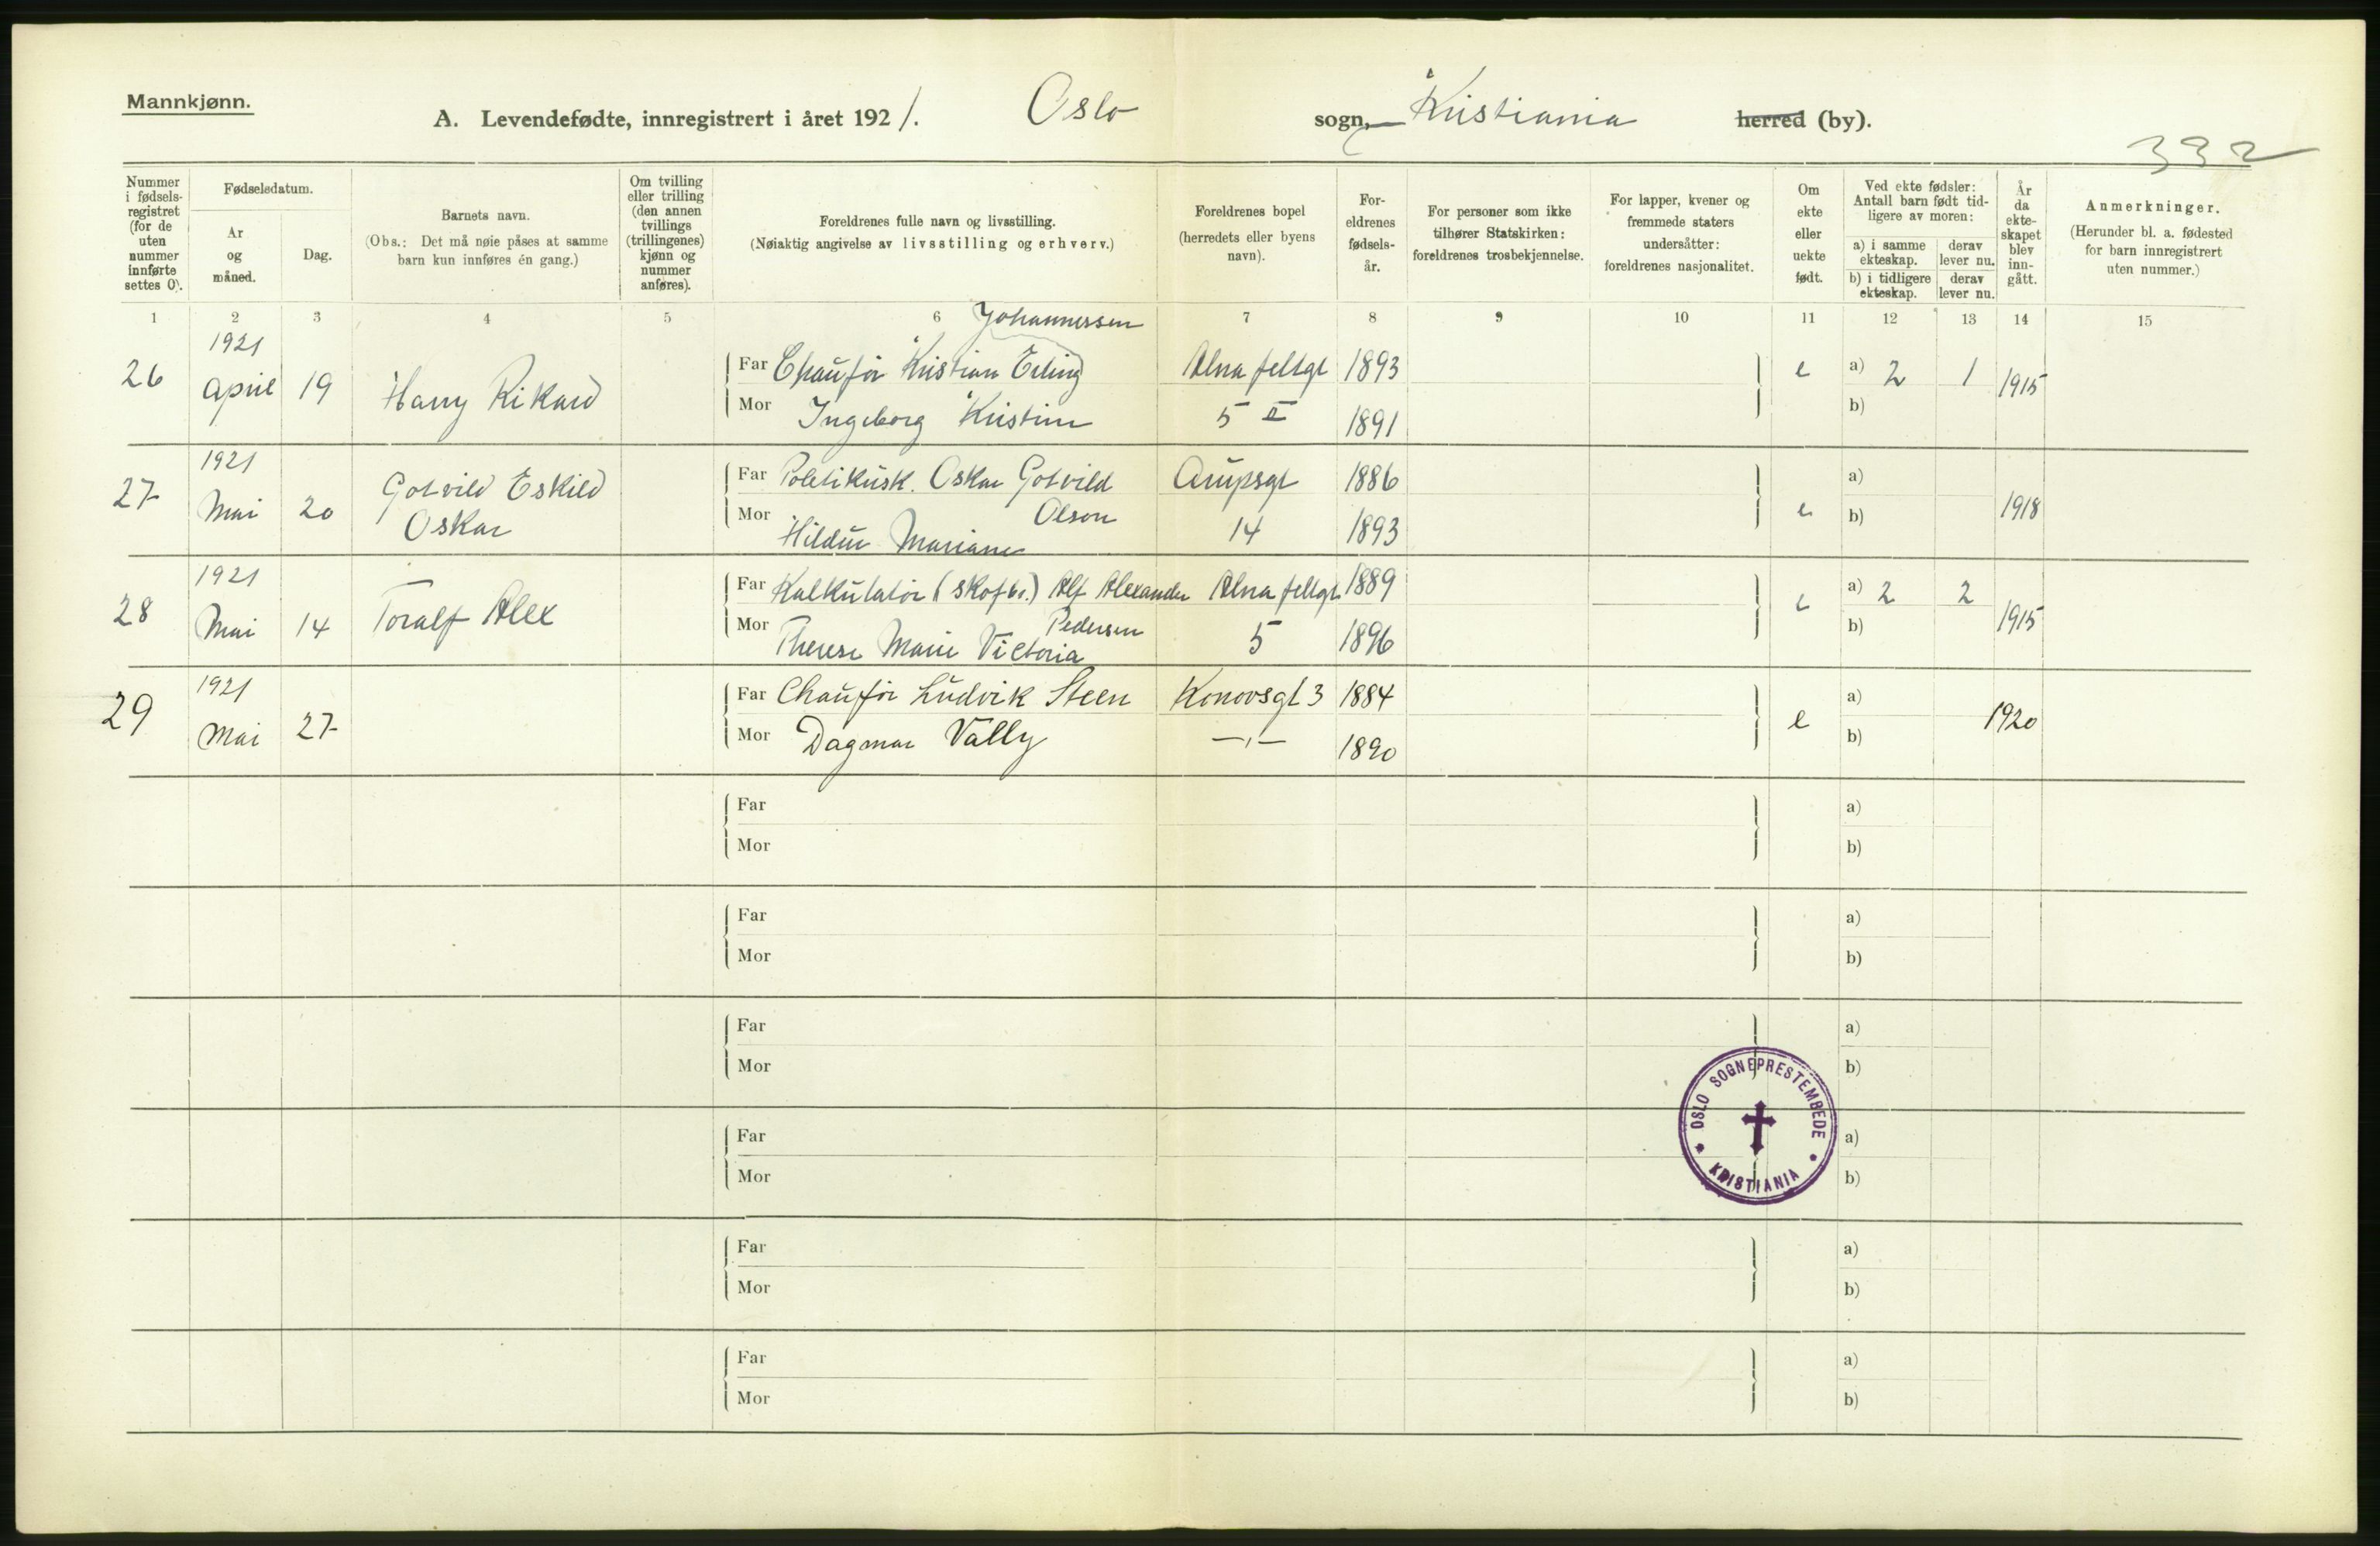 Mannkjønn.
A. Levendefødte, innregistrert i året 1921. Oslo sogn, Kristiania herred (by).
332
Nummer i fødsels-registret (for de uten nummer innførte settes 0).
Fødselsdatum.
År og måned.
Dag.
Barnets navn.
(Obs.: Det må nøie påses at samme barn kun innføres én gang.)
Om tvilling eller trilling (den annen tvillings (trillingenes) kjønn og nummer anføres).
Foreldrenes fulle navn og livsstilling.
(Nøiaktig angivelse av livsstilling og erhverv.)
Foreldrenes bopel (herredets eller byens navn).
For-eldrenes fødsels-år.
For personer som ikke tilhører Statskirken: foreldrenes trosbekjennelse.
For lapper, kvener og fremmede staters undersåtter: foreldrenes nasjonalitet.
Om ekte eller uekte født.
Ved ekte fødsler: Antall barn født tid-ligere av moren:
a) i samme ekteskap. derav lever nu.
b) i tidligere ekteskap. derav lever nu.
År da ekte-skapet blev inn-gått.
Anmerkninger.
(Herunder bl. a. fødested for barn innregistrert uten nummer.)
1 2 3 4 5 6 7 8 9 10 11 12 13 14 15
Johannersen
26 1921 April 19 Harry Rikard
Far Chaufør Kristian Erling Alna feltgt 1893 e a) 2 1 1915
Mor Ingeborg Kristine 5 II 1891 b)
27 1921 Mai 20 Gotvild Eskild Oskar
Far Politikusk. Oskar Gotvild Olson Arupsgt 1886 e a) 1918
Mor Hildur Mariane 14 1893 b)
28 1921 Mai 14 Toralf Alex
Far Kalkulatør (skofbr.) Alf Alexander Pedersen Alna feltgt 1889 e a) 2 2 1915
Mor Therese Marie Victoria 5 1896 b)
29 1921 Mai 27
Far Chaufør Ludvik Steen Konovsgt 3 1884 e a) 1920
Mor Dagmar Vally —"— 1890 b)
Far a)
Mor b)
Far a)
Mor b)
Far a)
Mor b)
Far a)
Mor b)
Far a)
Mor b)
Far a)
Mor b)
OSLO SOGNEPRESTEMBEDE
KRISTIANIA